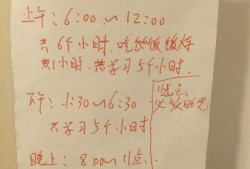 上午：6:00~12:00
共6个小时，吃饭
共1小时，共学习5个小时.
下午：1:30~6:30
共学习5个小时
11点
必须睡觉
晚上：8:00~11点